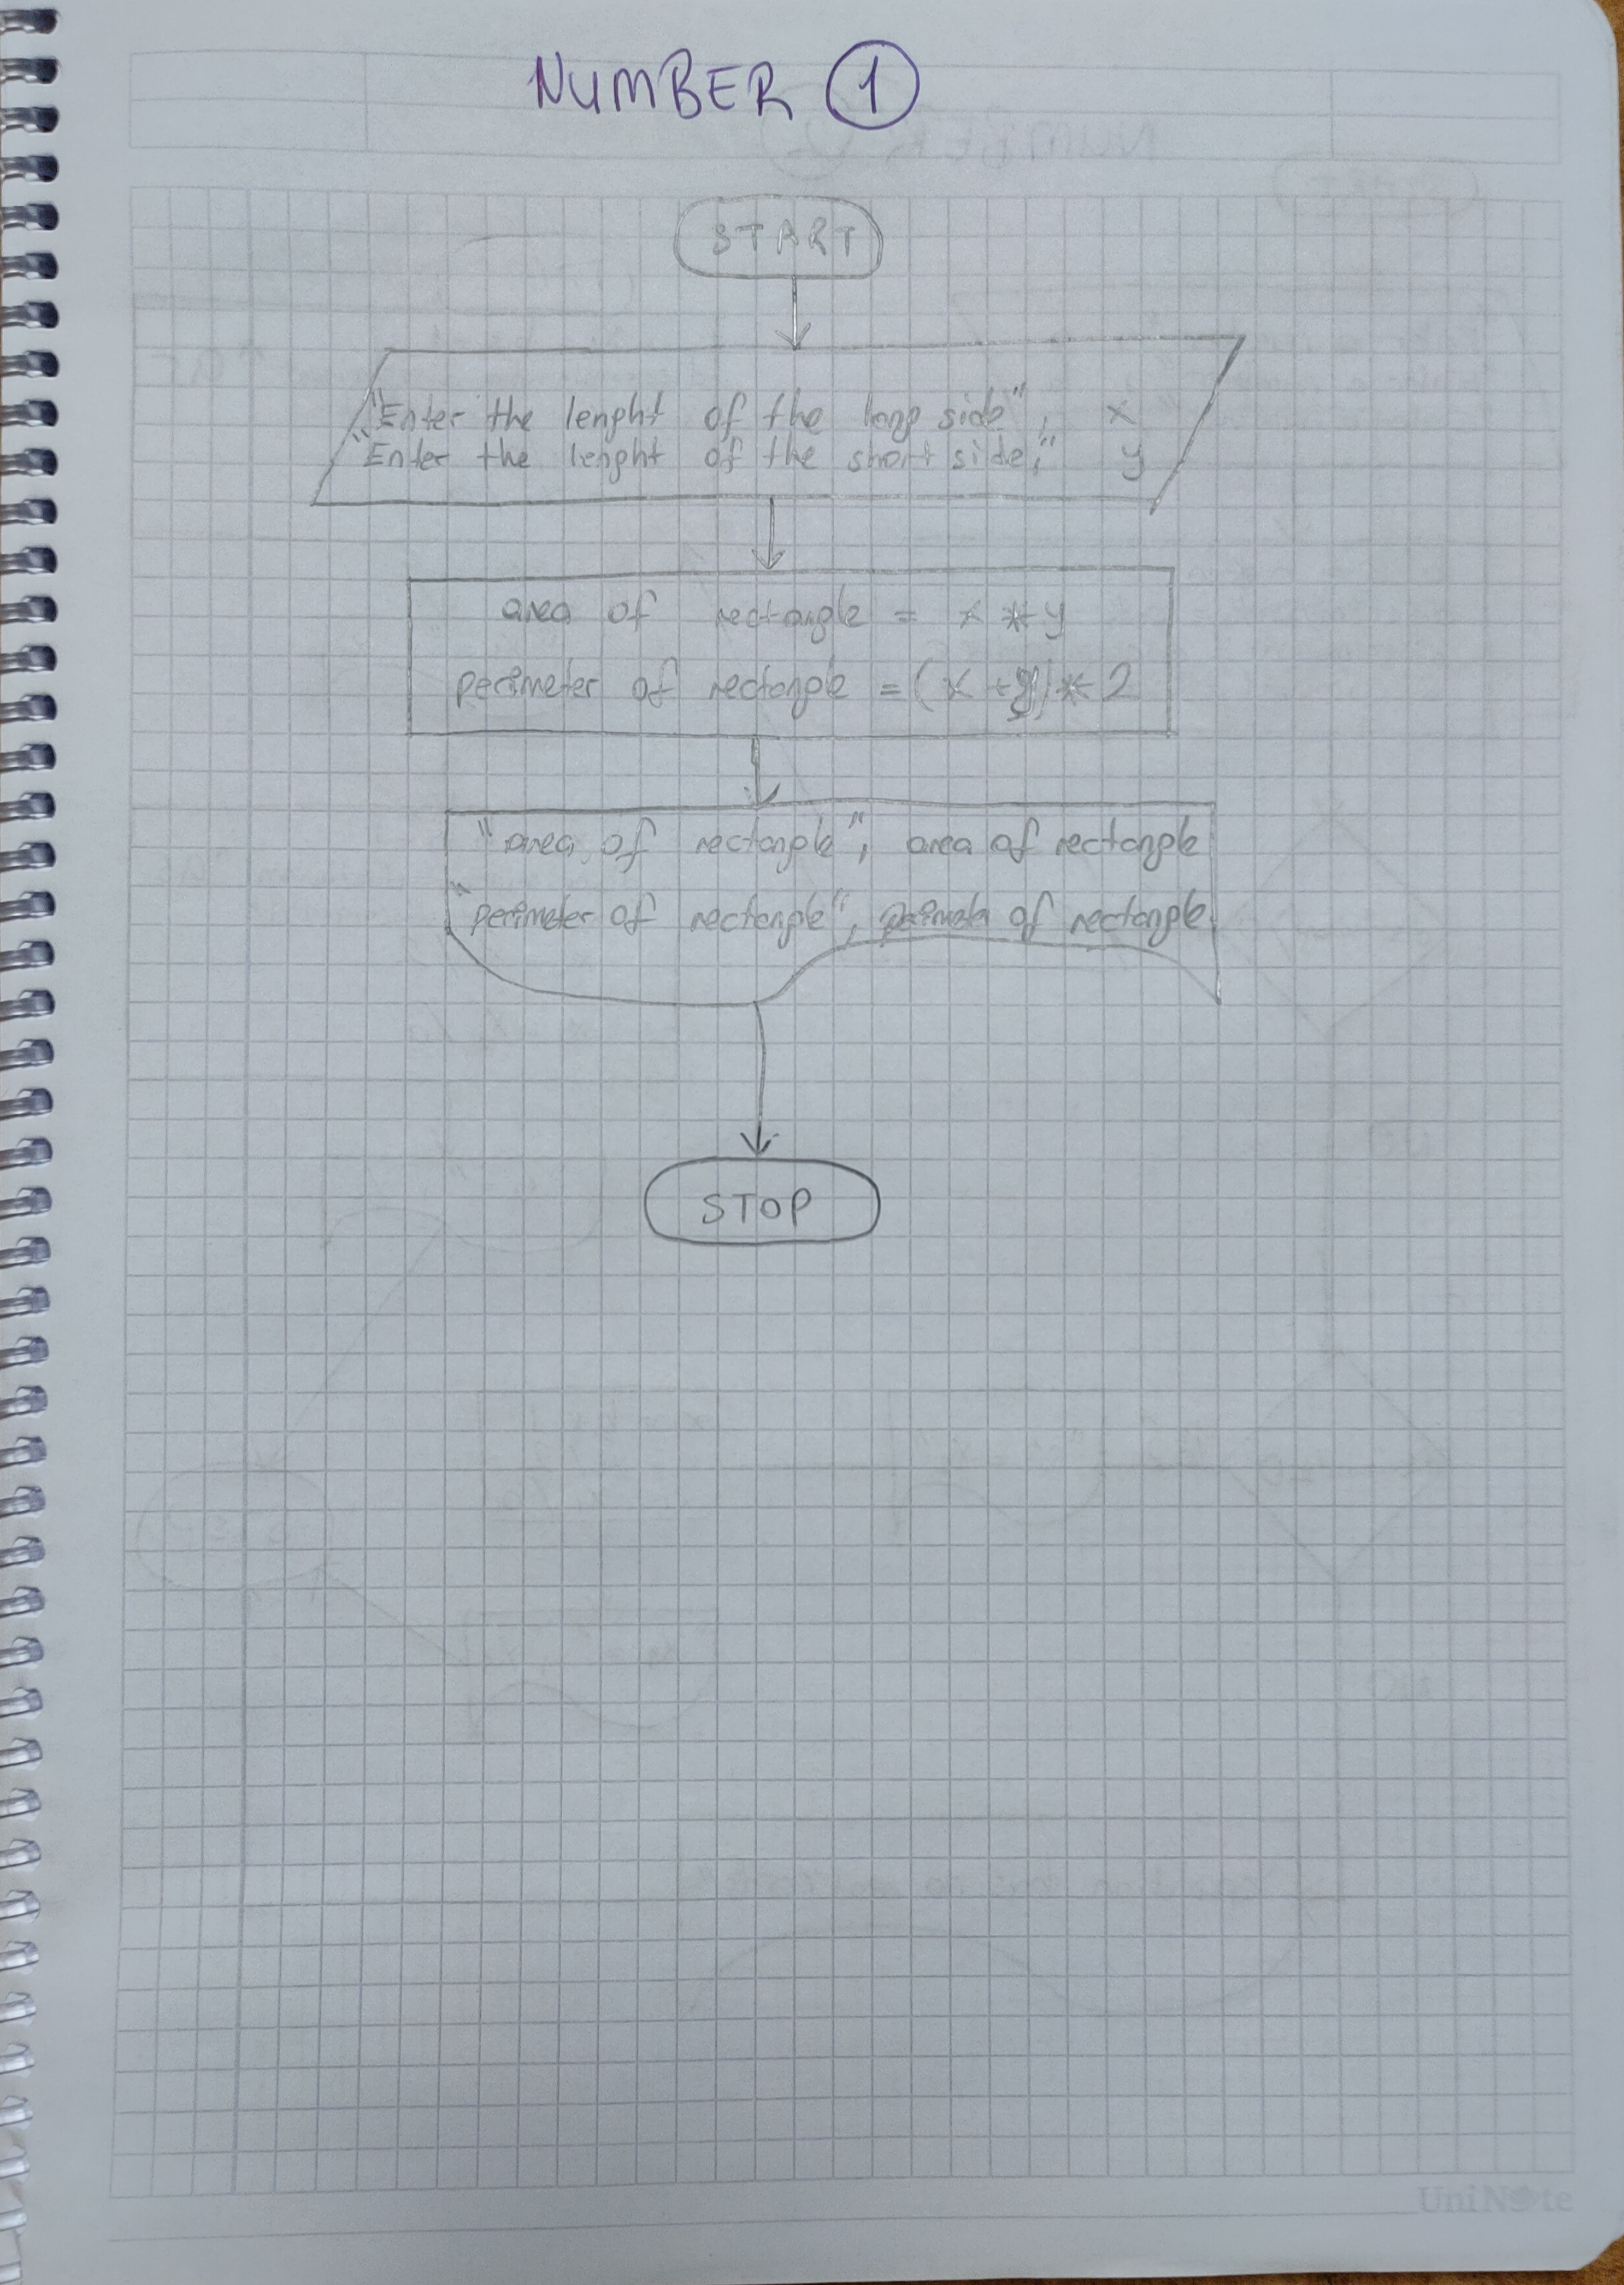 NUMBER 1
START
"Enter the lenght of the long side", x
"Enter the lenght of the short side;" y
area of rectangle = x * y
perimeter of rectangle = (x + y) * 2
"area of rectangle", area of rectangle
"perimeter of rectangle", perimeter of rectangle
STOP
UniNote